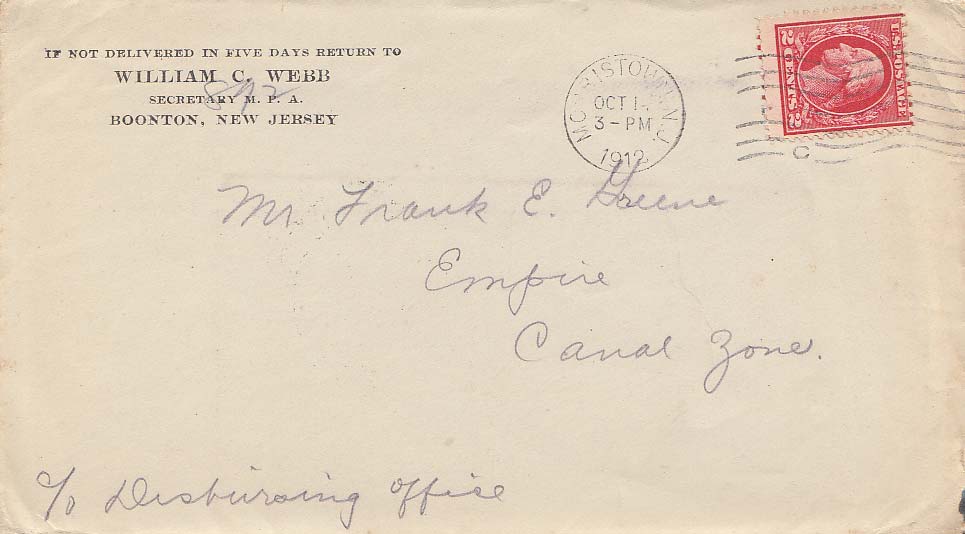 IF NOT DELIVERED IN FIVE DAYS RETURN TO
WILLIAM C. WEBB
SECRETARY M. P. A.
BOONTON, NEW JERSEY
MORRISTOWN, N.J.
OCT 1
3-PM
1912
C
U.S. POSTAGE
2 CENTS 2
Mr Frank E. Greene
Empire
Canal Zone.
c/o Disbursing Office